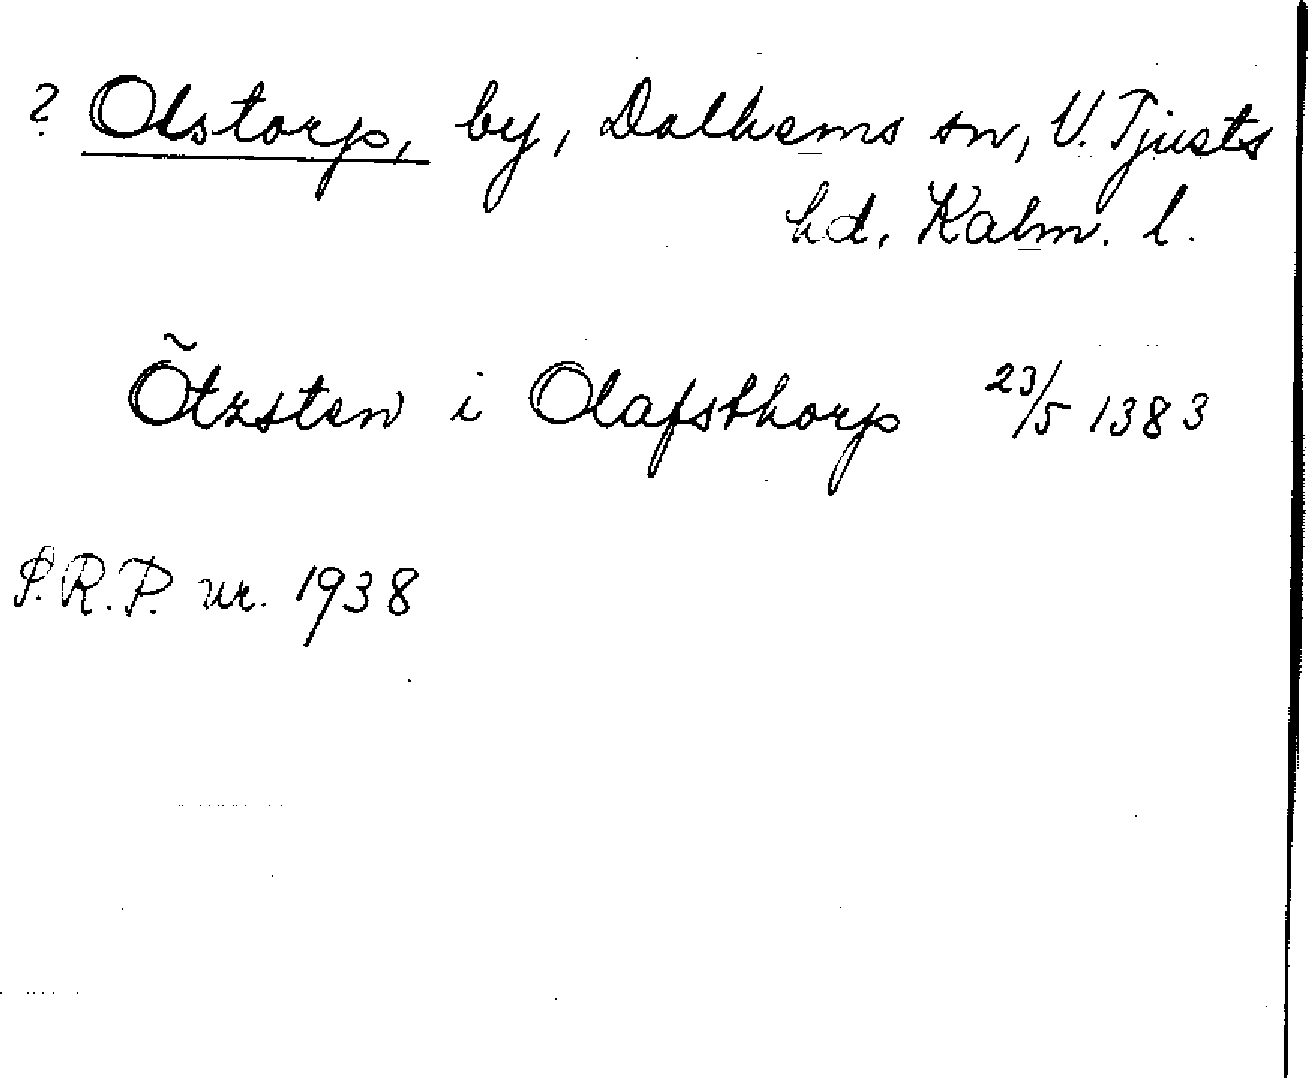 ? Olstorp, by, Dalhems sn, V. Tjusts
hd, Kalm. l.
Õtzsten i Olafsthorp 23/5 1383
S.R.P. nr. 1938